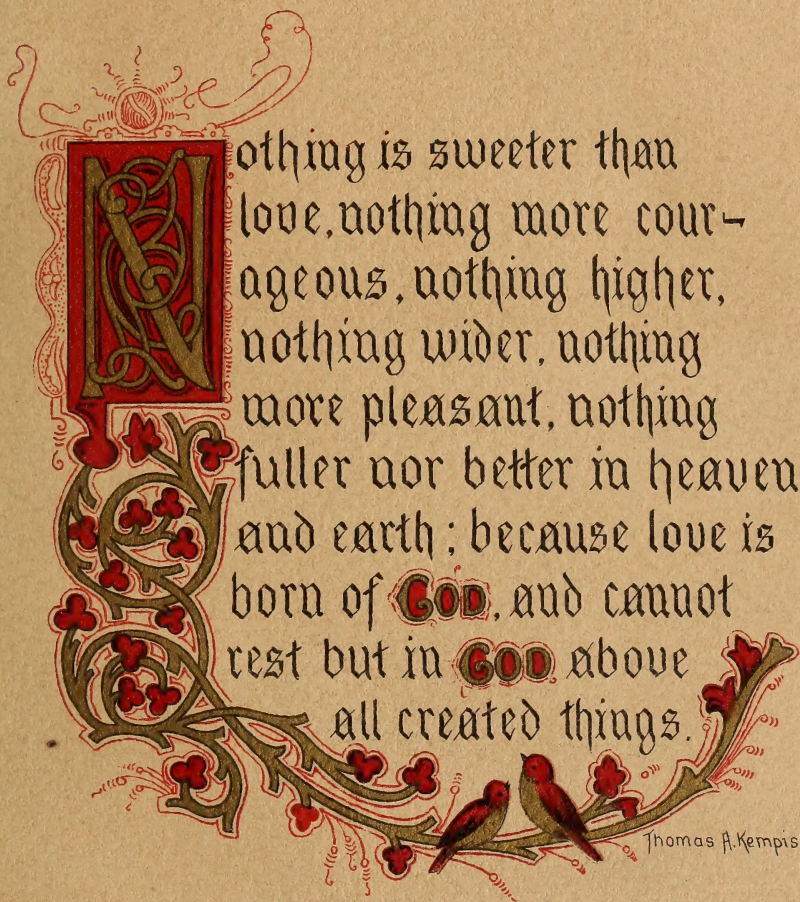 Nothing is sweeter than
love, nothing more cour-
ageous, nothing higher,
nothing wider, nothing
more pleasant, nothing
fuller nor better in heaven
and earth; because love is
born of GOD, and cannot
rest but in GOD above
all created things.
Thomas A. Kempis